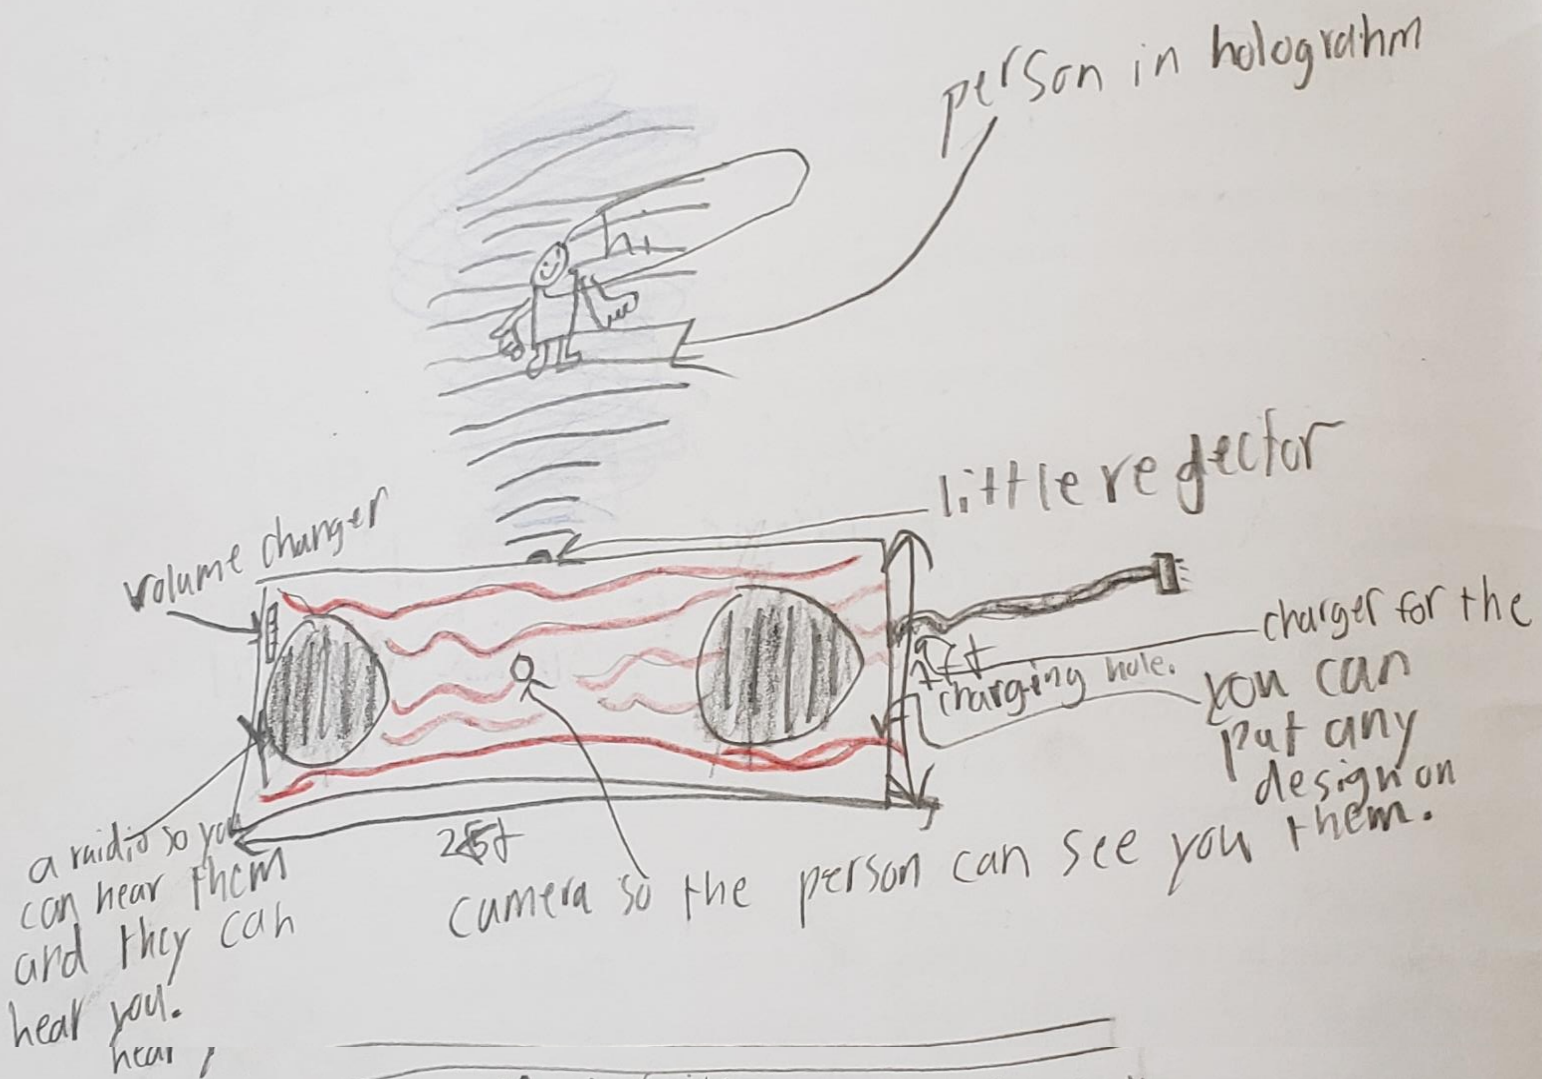 person in holograhm
hi
little regector
volume changer
charger for the
charging hole.
you can
put any
design on
them.
a raidio so you
can hear them
and they can
hear you.
hear
camera so the person can see you